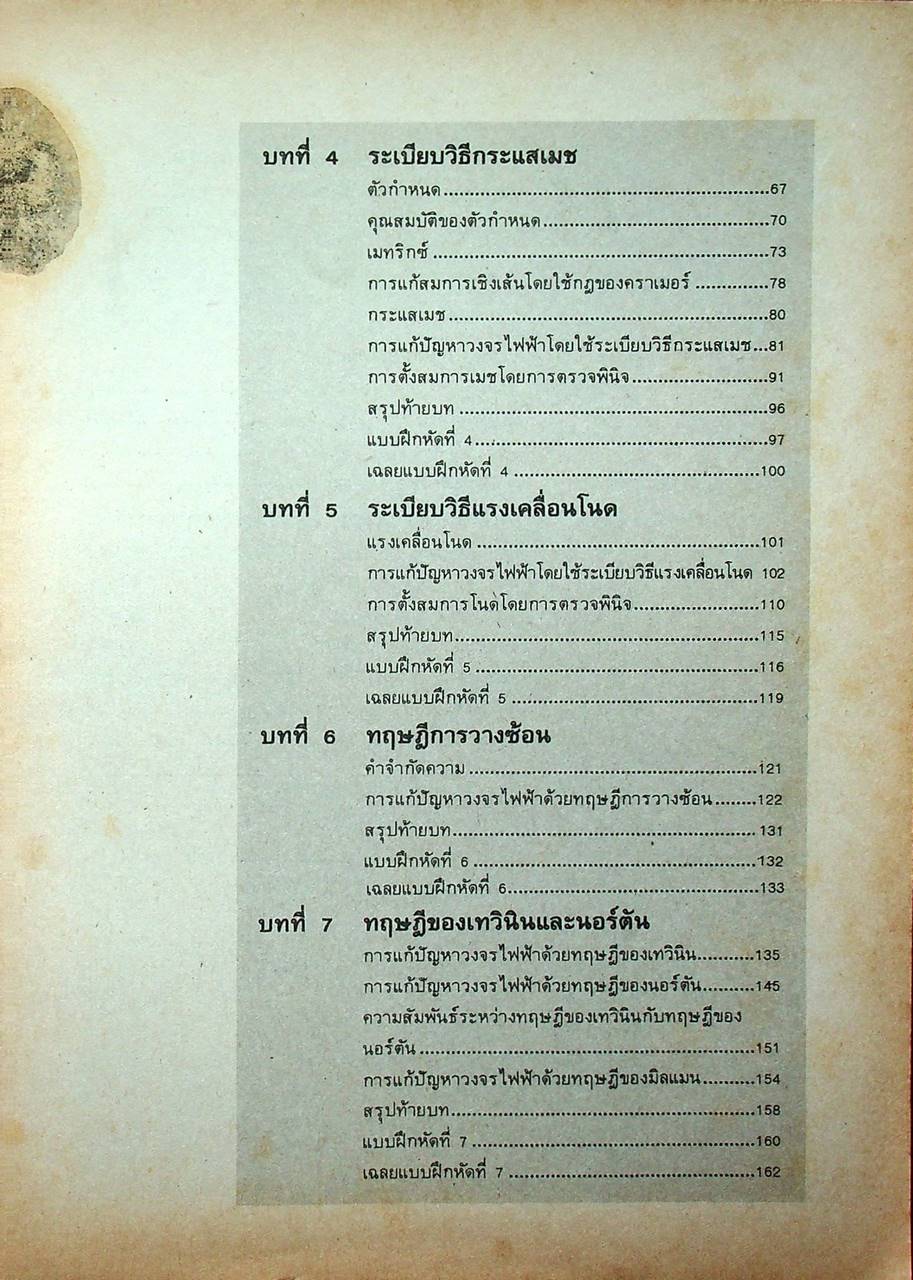 บทที่ 4 ระเบียบวิธีกระแสเมช
ตัวกำหนด.....67
คุณสมบัติของตัวกำหนด.....70
เมทริกซ์.....73
การแก้สมการเชิงเส้นโดยใช้กฎของคราเมอร์.....78
กระแสเมช.....80
การแก้ปัญหาวงจรไฟฟ้าโดยใช้ระเบียบวิธีกระแสเมช...81
การตั้งสมการเมชโดยการตรวจพินิจ.....91
สรุปท้ายบท.....96
แบบฝึกหัดที่ 4.....97
เฉลยแบบฝึกหัดที่ 4.....100
บทที่ 5 ระเบียบวิธีแรงเคลื่อนโนด
แรงเคลื่อนโนด.....101
การแก้ปัญหาวงจรไฟฟ้าโดยใช้ระเบียบวิธีแรงเคลื่อนโนด 102
การตั้งสมการโนดโดยการตรวจพินิจ.....110
สรุปท้ายบท.....115
แบบฝึกหัดที่ 5.....116
เฉลยแบบฝึกหัดที่ 5.....119
บทที่ 6 ทฤษฎีการวางซ้อน
คำจำกัดความ.....121
การแก้ปัญหาวงจรไฟฟ้าด้วยทฤษฎีการวางซ้อน.....122
สรุปท้ายบท.....131
แบบฝึกหัดที่ 6.....132
เฉลยแบบฝึกหัดที่ 6.....133
บทที่ 7 ทฤษฎีของเทวินินและนอร์ตัน
การแก้ปัญหาวงจรไฟฟ้าด้วยทฤษฎีของเทวินิน.....135
การแก้ปัญหาวงจรไฟฟ้าด้วยทฤษฎีของนอร์ตัน.....145
ความสัมพันธ์ระหว่างทฤษฎีของเทวินินกับทฤษฎีของ
นอร์ตัน.....151
การแก้ปัญหาวงจรไฟฟ้าด้วยทฤษฎีของมิลแมน.....154
สรุปท้ายบท.....158
แบบฝึกหัดที่ 7.....160
เฉลยแบบฝึกหัดที่ 7.....162